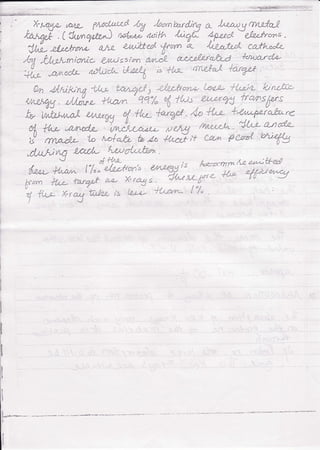 X-rays are produced by bombarding a heavy metal
target. (Tungsten) when with high speed electrons.
The electrons are emitted from a heated cathode
by thermionic emission and accelerated towards
the anode which itself is the metal target.
On striking the target, electrons lose their kinetic
energy. More than 99% of this energy transfers
to internal energy of the target. So the temperature
of the anode increases very much. The anode
is made to rotate to so that it can cool briefly
during each revolution.
of the
Less than 1% electron's energy is emitted
from the target as X-rays. Therefore the efficiency
of the X-ray tube is less than 1%